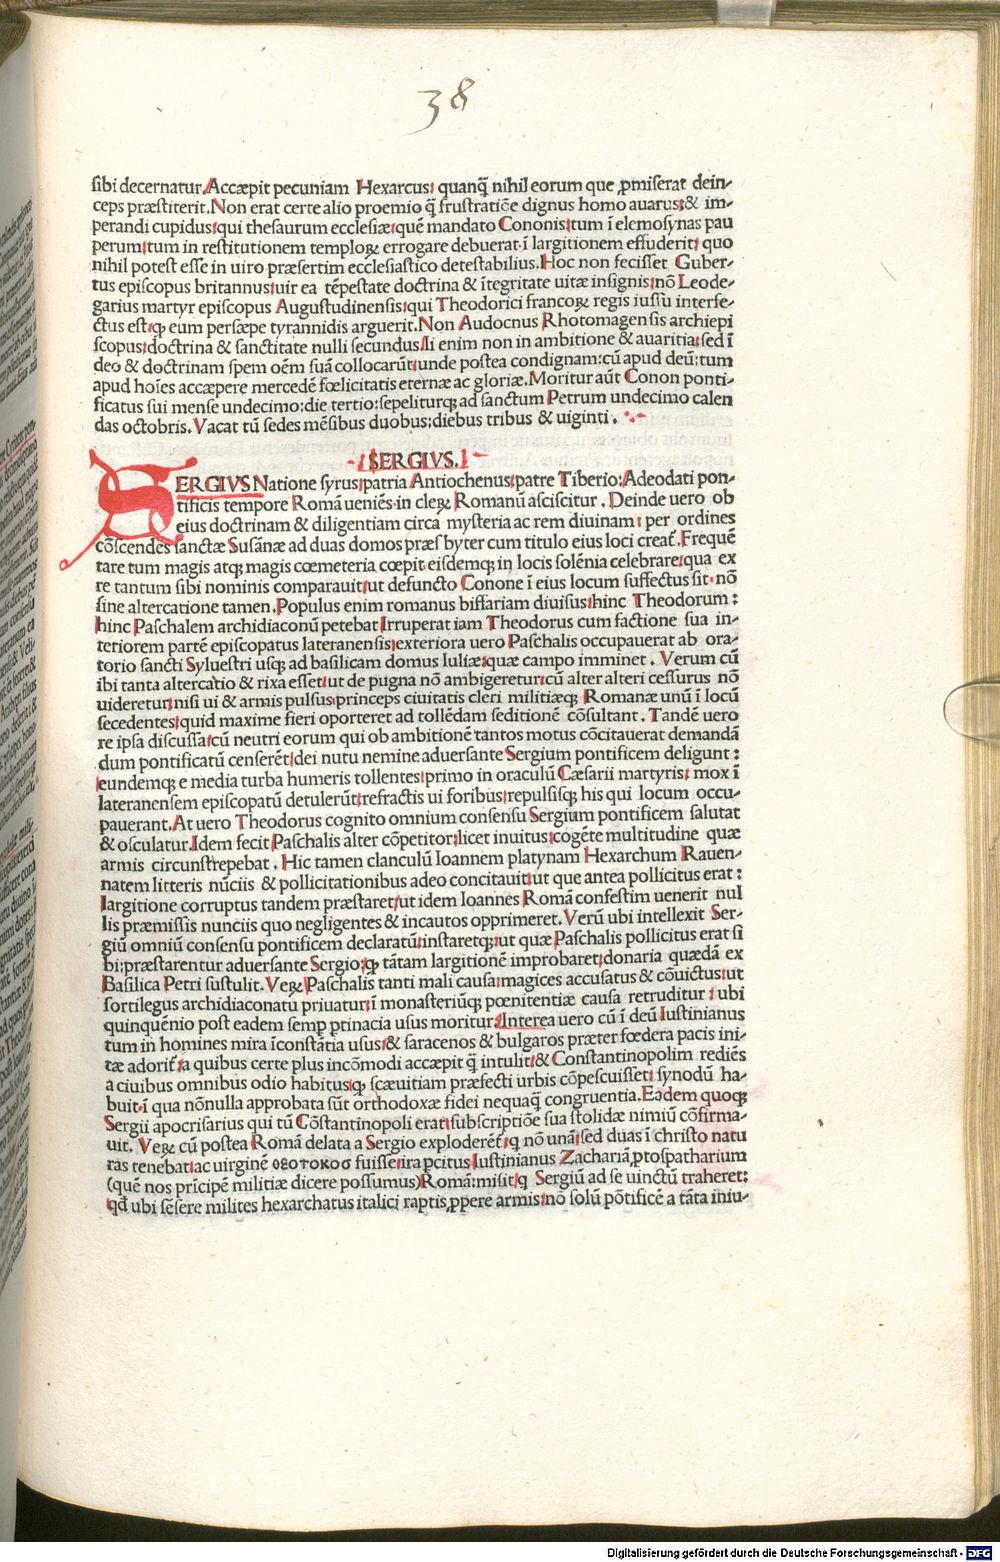 38
sibi decernatur. Accæpit pecuniam Hexarcus: quanq̃ nihil eorum que ꝓmiserat dein-
ceps præstiterit. Non erat certe alio proemio q̃ frustratiõe dignus homo auarus: & im-
perandi cupidus: qui thesaurum ecclesiæ: quẽ mandato Cononis: tum ĩ elemosynas pau
perum: tum in restitutionem temploꝝ errogare debuerat: ĩ largitionem effuderit: quo
nihil potest esse in uiro præsertim ecclesiastico detestabilius. Hoc non fecisset Guber-
tus episcopus britannus: uir ea tẽpestate doctrina & ĩtegritate uitæ insignis: nõ Leode-
garius martyr episcopus Augustudinensis: qui Theodorici francoꝝ regis iussu interfe-
ctus est: ꝙ eum persæpe tyrannidis arguerit. Non Audocnus Rhotomagensis archiepi
scopus: doctrina & sanctitate nulli secundus. Ii enim non in ambitione & auaritia: sed ĩ
deo & doctrinam spem oẽm suã collocarũt: unde postea condignam: cũ apud deũ: tum
apud hoĩes accæpere mercedẽ fœlicitatis eternæ ac gloriæ. Moritur aũt Conon ponti-
ficatus sui mense undecimo: die tertio: sepeliturqꝫ ad sanctum Petrum undecimo calen
das octobris. Vacat tũ sedes mẽsibus duobus: diebus tribus & uiginti.
SERGIVS.
SERGIVS Natione syrus: patria Antiochenus: patre Tiberio: Adeodati pon-
tificis tempore Romã ueniẽs: in cleꝝ Romanũ asciscitur. Deinde uero ob
eius doctrinam & diligentiam circa mysteria ac rem diuinam: per ordines
cõscendẽs sanctæ Susãnæ ad duas domos præsbyter cum titulo eius loci creat̃. Frequẽ
tare tum magis atqꝫ magis cœmeteria cœpit: eisdemqꝫ in locis solẽnia celebrare: qua ex
re tantum sibi nominis comparauit: ut defuncto Conone ĩ eius locum suffectus sit: nõ
sine altercatione tamen. Populus enim romanus biffariam diuisus: hinc Theodorum:
hinc Paschalem archidiaconũ petebat. Irruperat iam Theodorus cum factione sua in-
teriorem partẽ episcopatus lateranensis: exteriora uero Paschalis occupauerat ab ora-
torio sancti Syluestri usqꝫ ad basilicam domus Iuliæ: quæ campo imminet. Verum cũ
ibi tanta altercatio & rixa esset: ut de pugna nõ ambigeretur: cũ alter alteri cessurus nõ
uideretur: nisi ui & armis pulsus: princeps ciuitatis cleri militiæqꝫ Romanæ unũ ĩ locũ
secedentes: quid maxime fieri oporteret ad tollẽdam seditionẽ cõsultant. Tandẽ uero
re ipsa discussa: cũ neutri eorum qui ob ambitionẽ tantos motus cõcitauerat demandã
dum pontificatũ censerẽt: dei nutu nemine aduersante Sergium pontificem deligunt:
eundemqꝫ e media turba humeris tollentes: primo in oraculũ Cæsarii martyris: mox ĩ
lateranensem episcopatũ detulerũt: refractis ui foribus: repulsisqꝫ his qui locum occu-
pauerant. At uero Theodorus cognito omnium consensu Sergium pontificem salutat
& osculatur. Idem fecit Paschalis alter cõpetitor: licet inuitus: cogẽte multitudine quæ
armis circunstrepebat. Hic tamen clanculũ Ioannem platynam Hexarchum Rauen-
natem litteris nũciis & pollicitationibus adeo concitauit: ut que antea pollicitus erat:
largitione corruptus tandem præstaret: ut idem Ioannes Romã confestim uenerit nul
lis præmissis nunciis quo negligentes & incautos opprimeret. Verũ ubi intellexit Ser-
giũ omniũ consensu pontificem declaratũ: instaretqꝫ: ut quæ Paschalis pollicitus erat si
bi: præstarentur aduersante Sergio: ꝙ tãtam largitionẽ improbaret: donaria quædã ex
Basilica Petri sustulit. Veꝝ Paschalis tanti mali causa: magices accusatus & cõuictus: ut
sortilegus archidiaconatu priuatur: ĩ monasteriũqꝫ pœnitentiæ causa retruditur: ubi
quinquẽnio post eadem semꝑ ꝑtinacia usus moritur. Interea uero cũ ĩ deũ Iustinianus
tum in homines mira ĩconstãtia usus: & saracenos & bulgaros præter fœdera pacis ini-
tæ adorit̃: a quibus certe plus incõmodi accæpit q̃ intulit: & Constantinopolim rediẽs
a ciuibus omnibus odio habitus: ꝙ scæuitiam præfecti urbis cõpescuisset: synodũ ha-
buit: ĩ qua nõnulla approbata sũt orthodoxæ fidei nequaq̃ congruentia. Eadem quoqꝫ
Sergii apocrisarius qui tũ Cõstantinopoli erat: subscriptiõe sua stolidæ nimiũ cõfirma-
uit. Veꝝ cũ postea Romã delata a Sergio exploderẽt̃: ꝙ nõ unã: sed duas ĩ christo natu
ras tenebat: ac uirginẽ θεοτοκοσ fuisse: ira ꝑcitus Iustinianus Zachariã ꝓtospatharium
(quẽ nos prĩcipẽ militiæ dicere possumus) Romã: misit: ꝙ Sergiũ ad se uinctũ traheret:
qđ ubi sẽsere milites hexarchatus italici raptis ꝓpere armis: nõ solũ põtificẽ a tãta iniu-
Digitalisierung gefördert durch die Deutsche Forschungsgemeinschaft - DFG